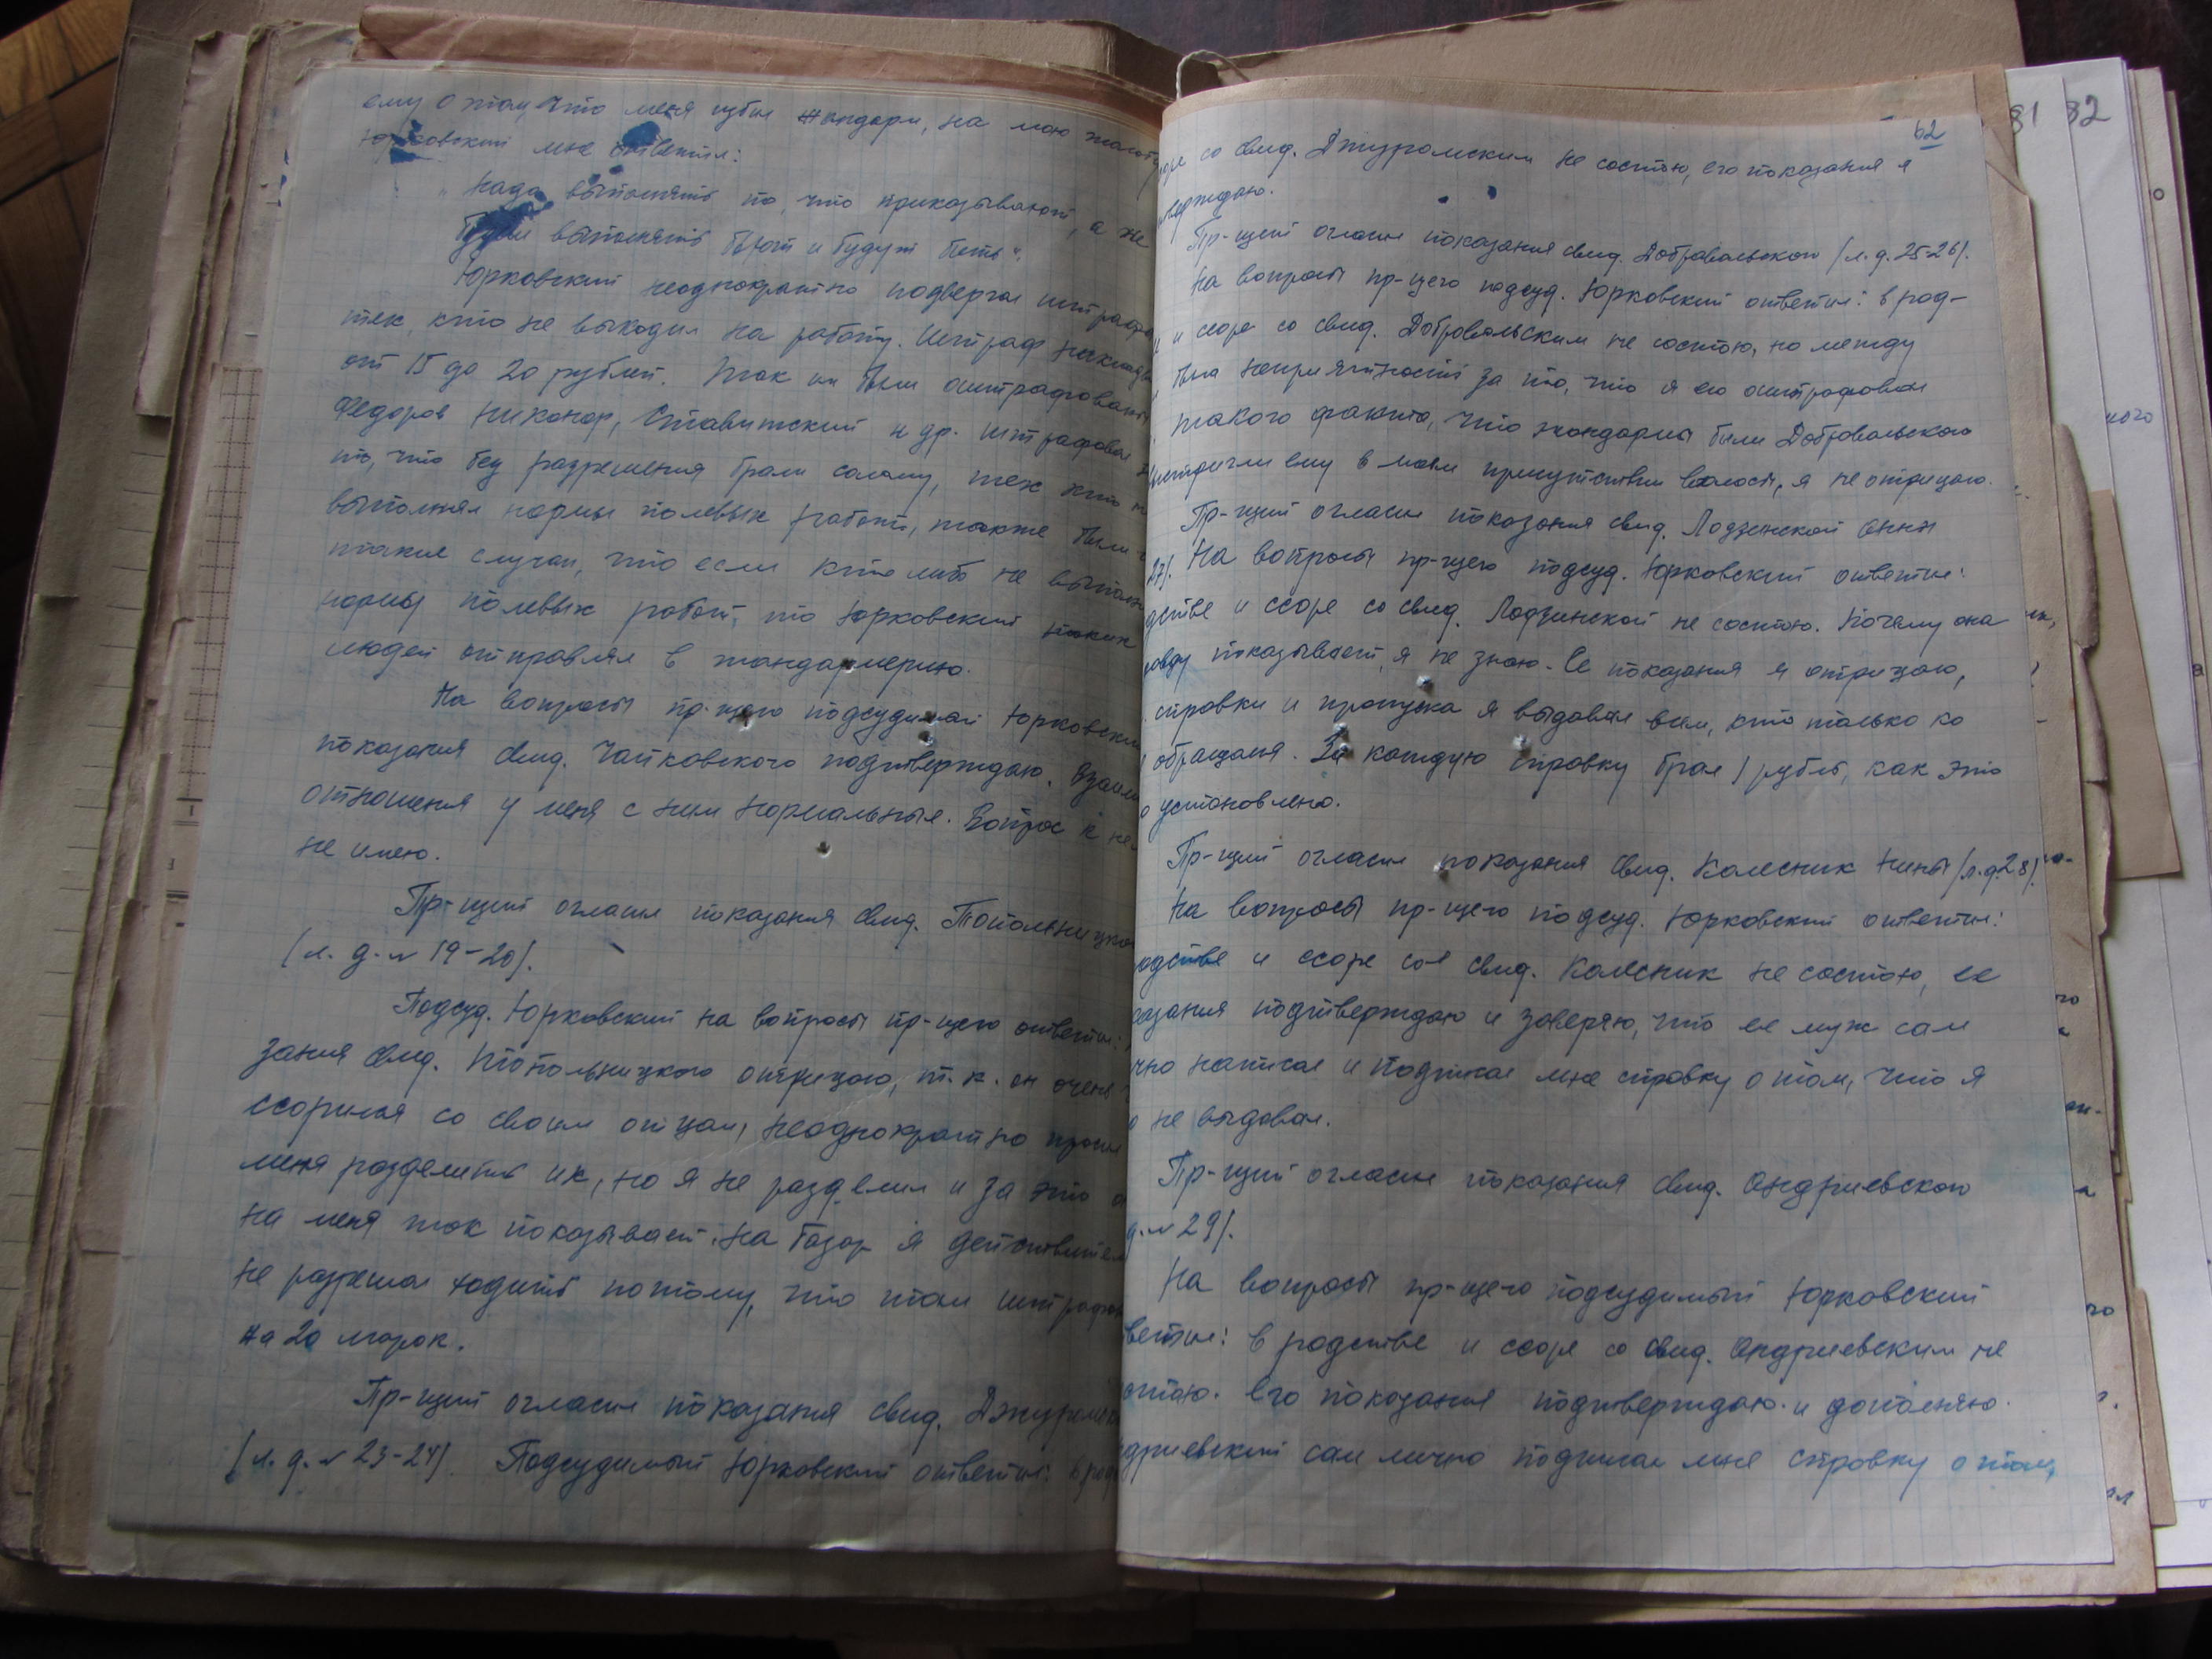 ему о том, что меня избил жандарм, на мою жалобу
Юрковский мне ответил:
"Надо выполнять то, что приказывают, а не
будем выполнять бьют и будут бить".
Юрковский неоднократно подвергал штрафу
тех, кто не выходил на работу. Штраф накладыв
от 15 до 20 рублей. Так им были оштрафованы
Федоров Никанор, Ставитский и др. штрафовал за
то, что без разрешения брали солому, тех кто не
выполнял нормы полевых работ, также были
такие случаи, что если кто либо не выполн
нормы полевых работ, то Юрковский таких
людей отправлял в жандармерию.
На вопросы пр-щего подсудимый Юрковский
показания свид. Чайковского подтверждаю. Взаимо
отношения у меня с ним нормальные. Вопрос к не
не имею.
Пр-щий огласил показания свид. Топольницко
(л. д. № 19-20).
Подсуд. Юрковский на вопросы пр-щего ответил:
зания свид. Топольницкого отрицаю, т.к. он очень
ссорился со своим отцом, неоднократно просил
меня разделить их, но я не разделил и за это он
на меня так показывает. На базар я действител
не разрешал ходить потому, что там штрафов
на 20 марок.
Пр-щий огласил показания свид. Джуромск
(л. д. № 23-24). Подсудимый Юрковский ответил: в род
81 82
62
соре со свид. Джуромским не состою, его показания я
тверждаю.
Пр-щий огласил показания свид. Добровольского (л. д. 25-26).
На вопросы пр-щего подсуд. Юрковский ответил: в род-
и ссоре со свид. Добровольским не состою, но между
была неприятность за то, что я его оштрафовал
такого факта, что жандармы били Добровольского
выстригли ему в моем присутствии волосы, я не отрицаю.
Пр-щий огласил показания свид. Лодзинской Анны
27). На вопросы пр-щего подсуд. Юрковский ответил:
дстве и ссоре со свид. Лодзинской не состою. Почему она
равду показывает, я не знаю. Ее показания я отрицаю,
справки и пропуска я выдавал всем, кто только ко
обращался. За каждую справку брал 1 рубль, как это
о установлено.
Пр-щий огласил показания свид. Колесник Нины (л. д. 28).
На вопросы пр-щего подсуд. Юрковский ответил:
родстве и ссоре со свид. Колесник не состою, ее
казания подтверждаю и заверяю, что ее муж сам
чно написал и подписал мне справку о том, что я
о не выдавал.
Пр-щий огласил показания свид. Андриевского
д. № 29).
На вопросы пр-щего подсудимый Юрковский
ветил: в родстве и ссоре со свид. Андриевским не
остою. Его показания подтверждаю и дополняю.
дриевский сам лично подписал мне справку о том,